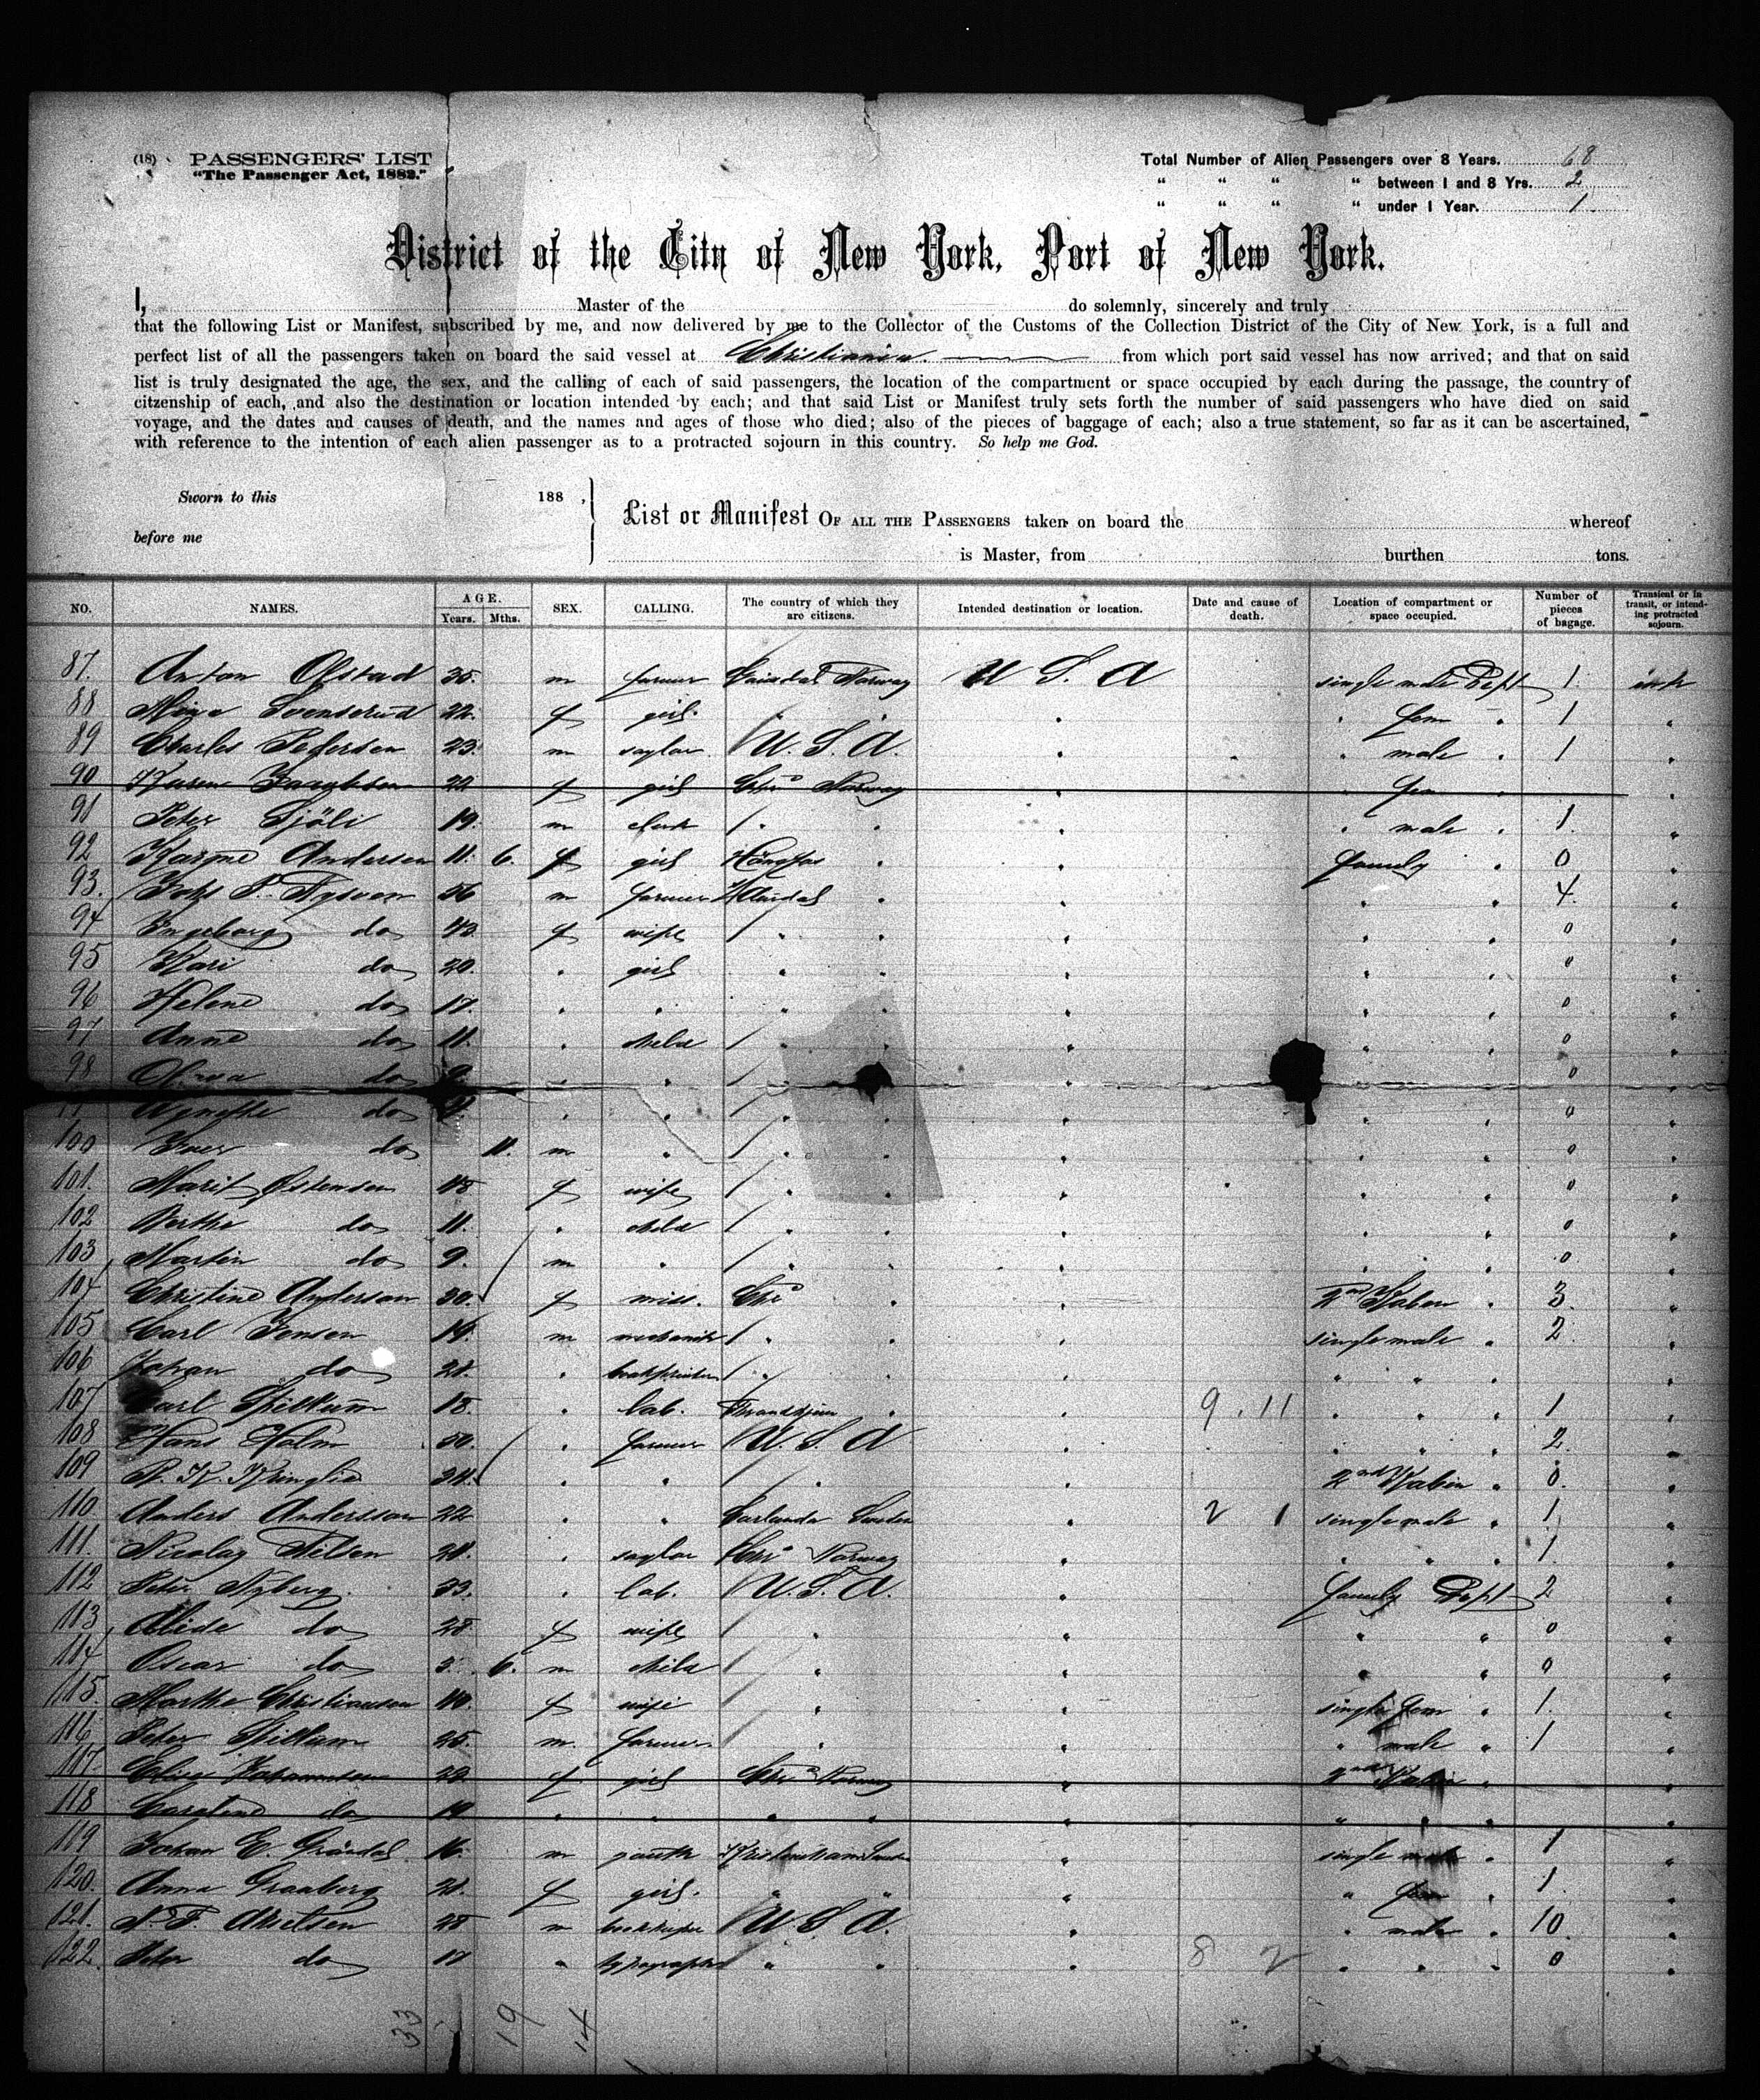 (18) PASSENGERS' LIST
"The Passenger Act, 1882."
Total Number of Alien Passengers over 8 Years. 68
" " " " between 1 and 8 Yrs. 2
" " " " under 1 Year. 1
District of the City of New York, Port of New York.
I, Master of the do solemnly, sincerely and truly
that the following List or Manifest, subscribed by me, and now delivered by me to the Collector of the Customs of the Collection District of the City of New York, is a full and
perfect list of all the passengers taken on board the said vessel at Christiania. from which port said vessel has now arrived; and that on said
list is truly designated the age, the sex, and the calling of each of said passengers, the location of the compartment or space occupied by each during the passage, the country of
citzenship of each, and also the destination or location intended by each; and that said List or Manifest truly sets forth the number of said passengers who have died on said
voyage, and the dates and causes of death, and the names and ages of those who died; also of the pieces of baggage of each; also a true statement, so far as it can be ascertained,
with reference to the intention of each alien passenger as to a protracted sojourn in this country. So help me God.
Sworn to this 188 ,
before me
List or Manifest OF ALL THE PASSENGERS taken on board the whereof
is Master, from burthen tons.
NO. NAMES. AGE. Years. Mths. SEX. CALLING. The country of which they are citizens. Intended destination or location. Date and cause of death. Location of compartment or space occupied. Number of pieces of bagage. Transient or in transit, or intending protracted sojourn.
87. Anton Olstad 35. m farmer Norway U S A single male Dept 1.
88 Svenserud 22. f girl. " " " fem " 1 "
89 Charles Pedersen 23. m saylor U. S. A. " " male " 1 "
90 22 f girl Chra Norway " " fem " "
91 Peter Sjöli 19. m clerk " " " " male " 1. "
92 Karine Andersen 11. 6. f girl " " family " 0 "
93. Johs P. 56 m farmer " " " " 4. "
94 Ingeborg do 43 f wife " " " " " 0 "
95 Kari do 20. " girl " " " " " 0 "
96 Helene do 17. " " " " " " " 0 "
97 Anne do 11. " child " " " " " 0 "
98 do " " " " " 0 "
Agnethe do " " " " " " " 0 "
100 Iver do 11. m " " " " " " 0 "
101. Marit Østensen 48 f wife " " " " " 0 "
102 Berthe do 11. " child " " " " " 0 "
103 Martin do 9. m " " " " " " 0 "
104 Christine Anderson 30. f miss. Chra " " 2nd Kaben " 3. "
105 Carl Jensen 19. m mechanik " " " single male " 2. "
106 Johan do 21. " " " " " " "
107 Carl Spillum 18. " lab. Throndhjem " " 9 . 11 " " " 1 "
108 Hans Holm 50. " farmer U. S. A " " " " 2. "
109 P. K. Kringlie 34. " " " " 2nd Kabin " 0. "
110 Anders Andersson 22 " " Sweden " 2 1 single male " 1 "
111. Nicolay Nilsen 21. " saylor Chra Norway " " " " 1. "
112 Peter Nyberg. 33. " lab. U. S. A. " family Dept 2 "
113 do 28 f wife " " " " 0 "
114 Oscar do 3. 6. m child " " " " 0 "
115. Marthe Christianson 40. f wife " " single fem " 1. "
116 Peter Spillum 25. m. farmer. " " " male " 1 "
117. 22 f girl Chra Norway " 2nd Kabin " "
118 do 19 " " " " " " " " "
119 Johan E. 16. m youth " single male " 1 "
120. Anna Graaberg 21. f girl. " " " " fem " 1. "
121. 28 m bookkeper U. S. A. " " male " 10. "
122. Peter do 17 " typograph " " " 8 2 " " " 0 "
33 19 14